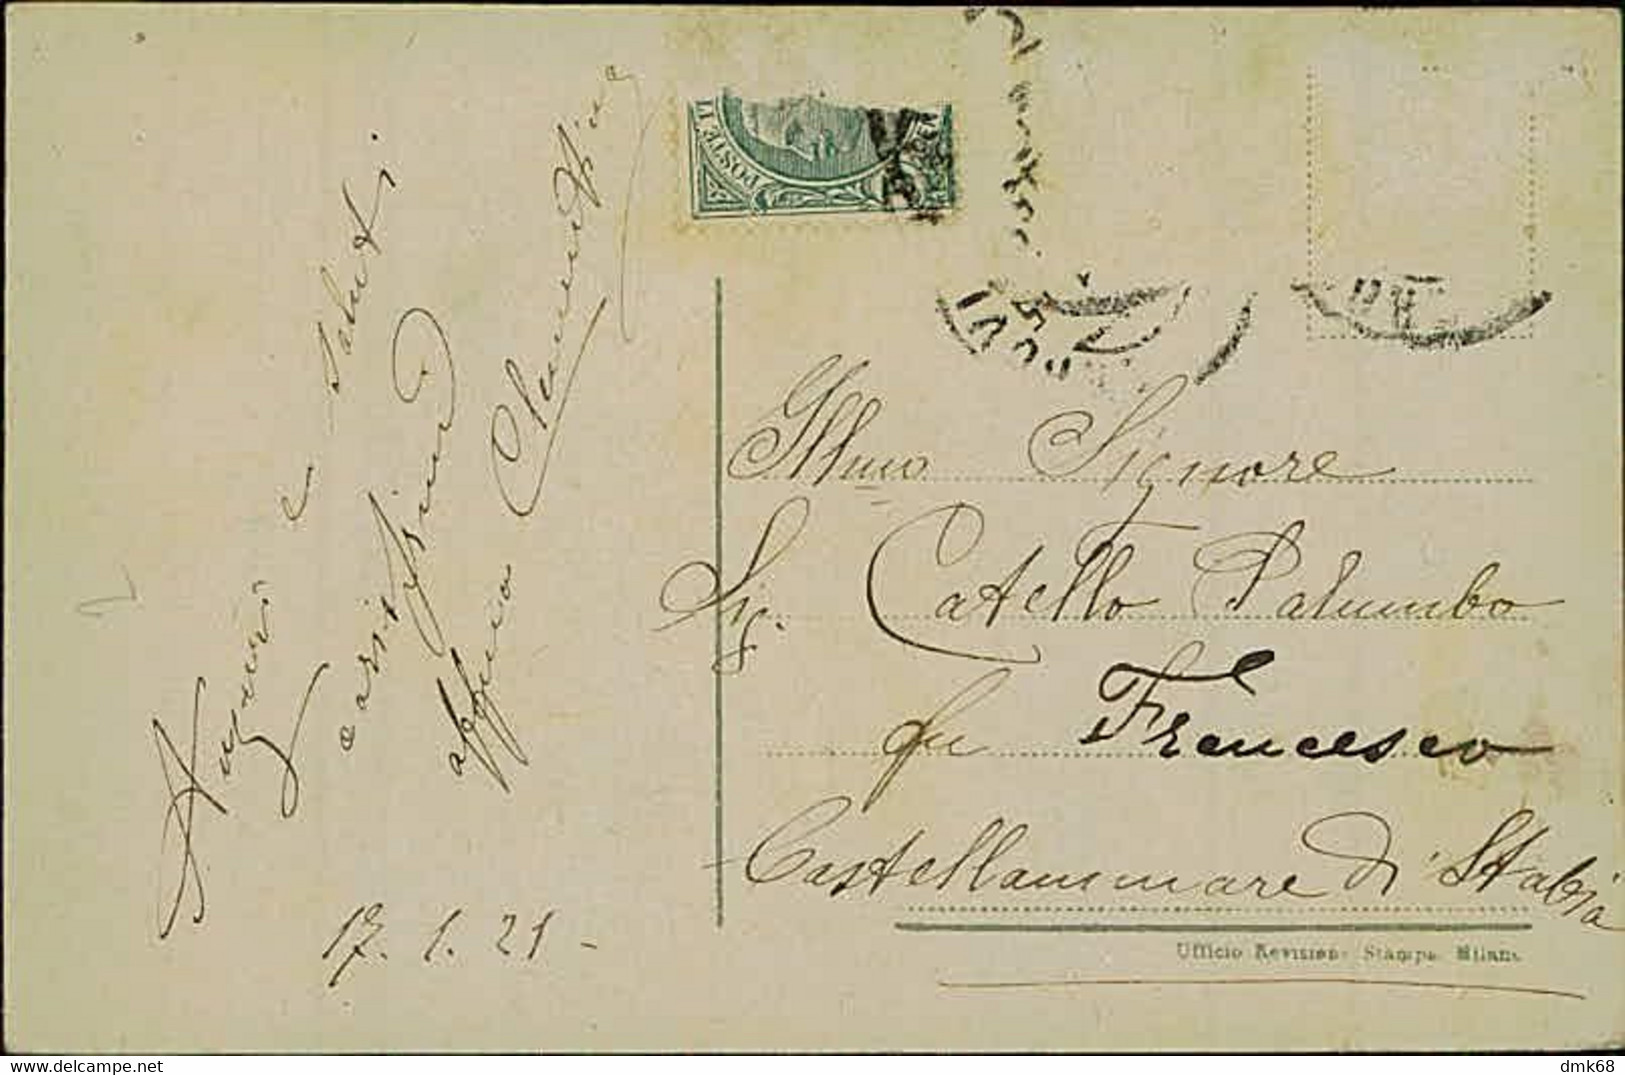 Auguri e saluti
carissimi
affmo Clementino
17. 1. 21 -
POSTE IT
Illmo Signore
Sig. Catello Palumbo
fu Francesco
Castellammare di Stabia
Ufficio Revisione Stampa Milano
dmk68